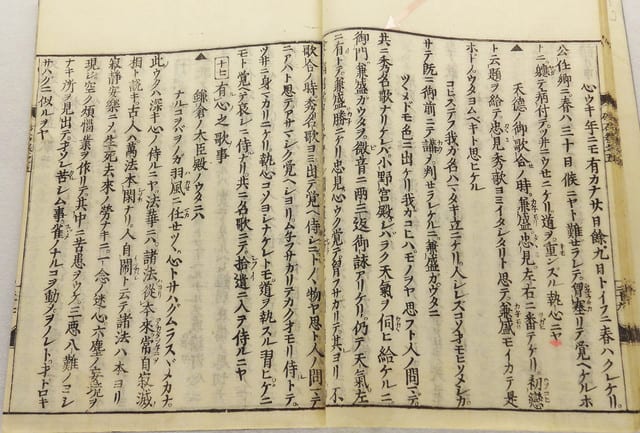 心ウキ年ニモ有カナ廿日餘九日トイフニ春ハクレケリ
公任卿ニ春ハ三十日候ニヤト難セラレテ胸塞リテ覺ヘケルホ
トニ軈テ病付テツ井ニウセニケリ道ヲ重シズル執心ニヤ
▲天德ノ御歌合ノ時兼盛忠見左右ニ番テケリ初戀
ト云題ヲ給テ忠見秀歌ヨミイダシタリト思テ兼盛モイカテ是
ホドノウタヨムベキト思ヒケル
コヒステフ我カ名ハマタキ立ニケリ人シレスコソオモヒソメシカ
サテ既ニ御前ニテ講シ判セラレケルニ兼盛カウタニ
ツヽメドモ色ニ出ケリ我カコヒハモノヲヤ思フト人ノ問マデ
共ニ秀名歌ナリケレバ小野宮殿シバラク天氣ヲ伺ヒ給ケルニ
御門兼盛ガウタヲ微音ニ兩三返御詠アリケリ仍テ天氣左
ニ有トテ兼盛勝ニケリ忠見心ウク覺テ胸フサカリテ其ヨリ不
歌合ノ時秀名歌ヨミ出テ覺ヘ侍シニトノヽ物ヤ思ト人ノ問ニテ
ニアハト思テアサマシク覺ヘシヨリムネフサガリテカクオモリ侍トテ
ツ井ニ身マカリニケリ執心コソヨシナケレトモ道ヲ執スル習ヒゲニ
モト覺テ哀レニ侍ナリ共ニ名歌ニテ拾遺ニ入テ侍ルニヤ
十七 有心之歌事
▲鎌倉ノ大臣殿ノウタニ
ナルコヲバヲノガ羽風ニ任セツヽ心トサハグムラスヾメカナ
此ウタハ深キ心ノ侍ルニヤ法華ニハ諸法從本來常自寂滅
相ト説キ古人ハ萬法本閑ナリ人自鬧ト云テ諸法ハ本ヨリ
寂靜安樂ニメ生死去來ノ勞ナキニ一念ノ迷心六塵ノ妄境ヲ
現空ク煩惱業ヲ作リテ其中ニ苦患ヲウケ三惡八難ノヨシ
ナキ所ヲ見出テ苦レム事雀ノナルコヲ動メヲノレトヲトロキ
サハグニ似ルヲヤ